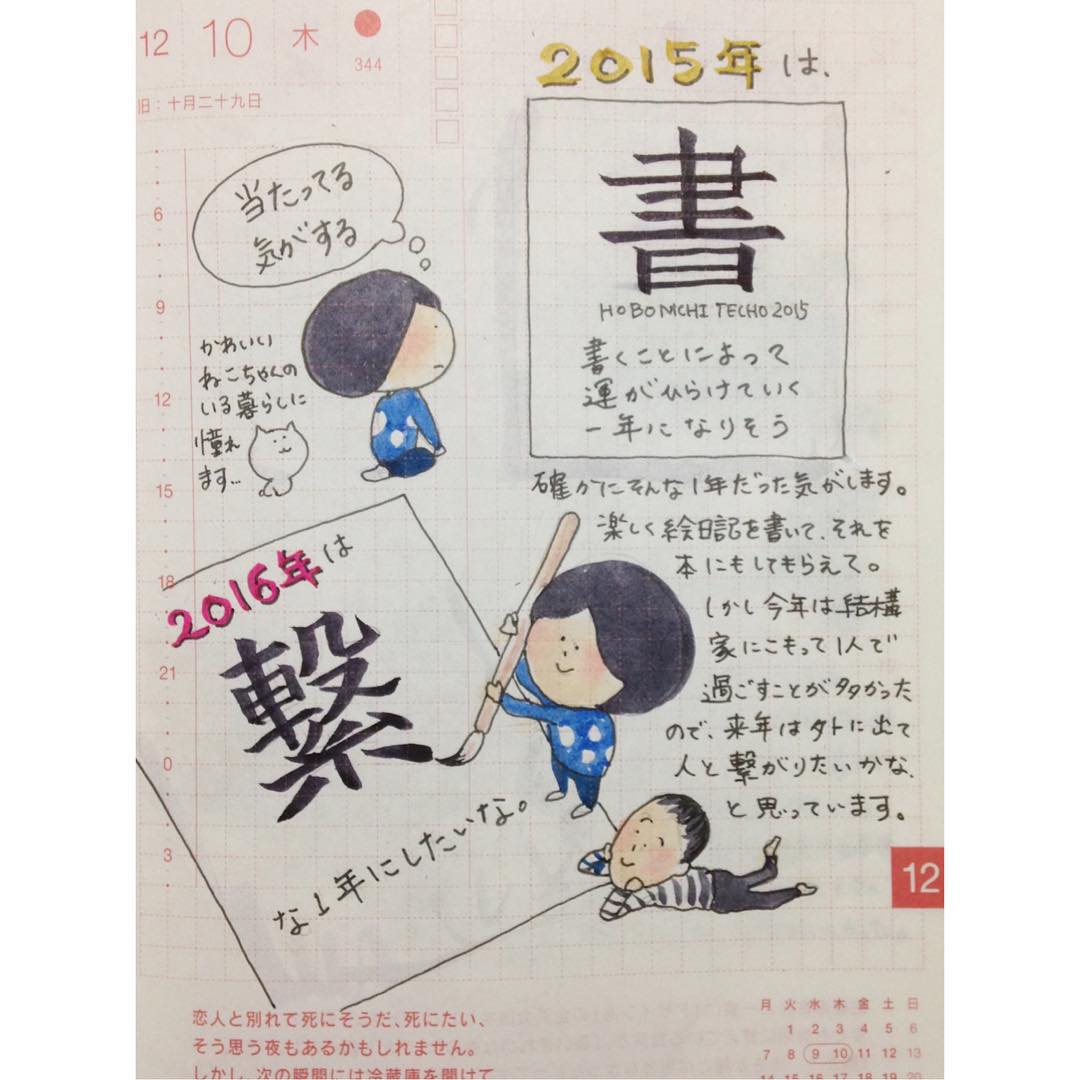 12 10 木
344
旧：十月二十九日
2015年は、
書
HOBONICHI TECHO 2015
書くことによって
運がひらけていく
一年になりそう
当たってる
気がする
かわいい
ねこちゃんの
いる暮らしに
憧れ
ます…
確かにそんな1年だった気がします。
楽しく絵日記を書いて、それを
本にもしてもらえて。
しかし今年は結構
家にこもって1人で
過ごすことが多かった
ので、来年は外に出て
人と繋がりたいかな、
と思っています。
2016年は
繋
な1年にしたいな。
6
9
12
15
18
21
0
3
12
恋人と別れて死にそうだ、死にたい、
そう思う夜もあるかもしれません。
しかし、次の瞬間には冷蔵庫を開けて
月 火 水 木 金 土 日
1 2 3 4 5 6
7 8 9 10 11 12 13
14 15 16 17 18 19 20